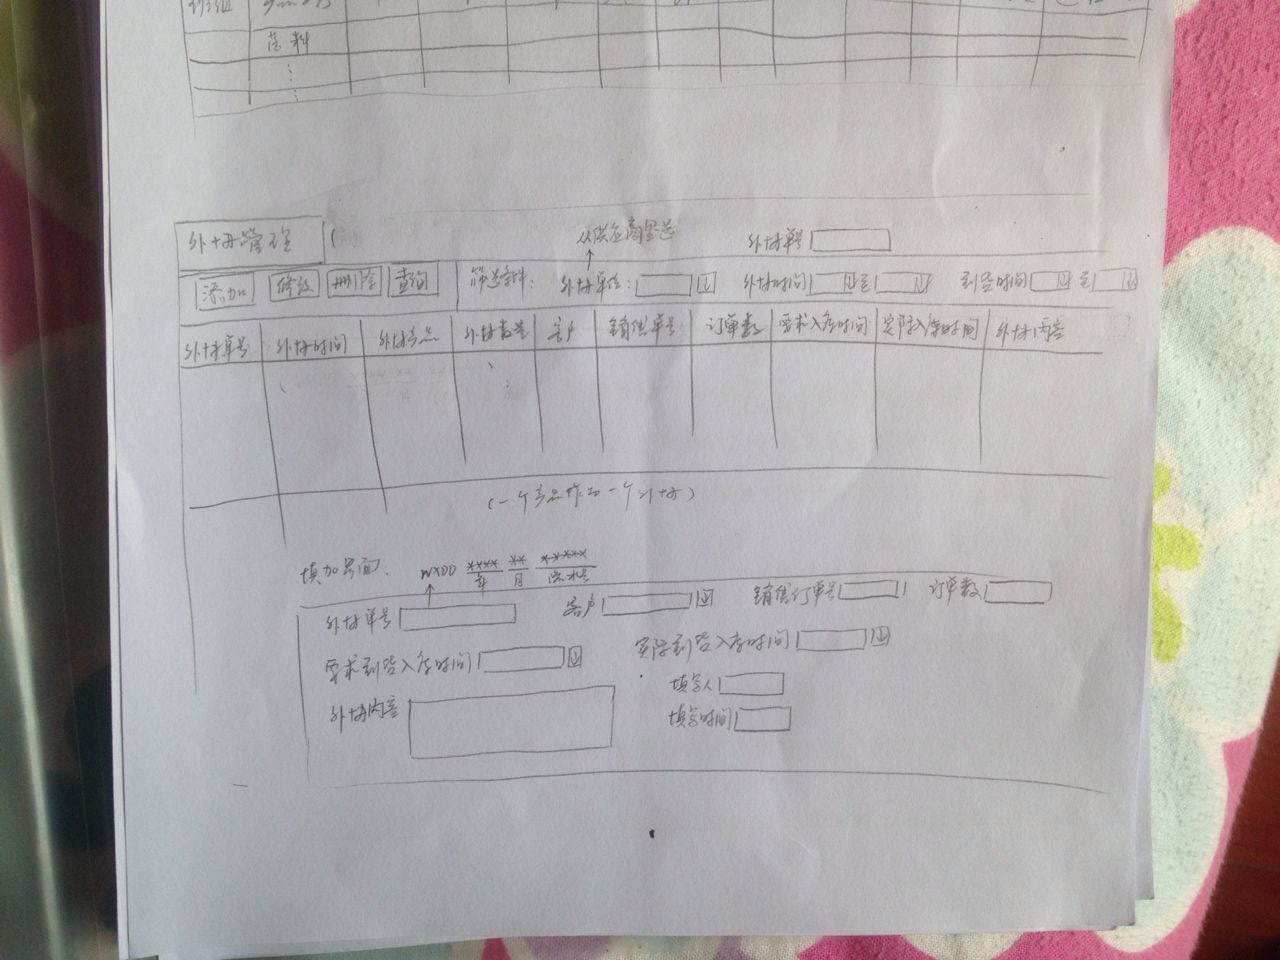 班组
落料
外协管理
从供应商里选
外协单号
添加 修改 删除 查询 筛选条件: 外协单位: 外协时间 至 到货时间 至
外协单号 外协时间 外协产品 外协数量 客户 销售单号 订单数 要求入库时间 实际入库时间 外协内容
(一个产品作为一个外协)
填加页面. WXDD **** ** *****
年 月 流水号
外协单号 客户 销售订单号 订单数
要求到货入库时间 实际到货入库时间
外协内容 填写人
填写时间